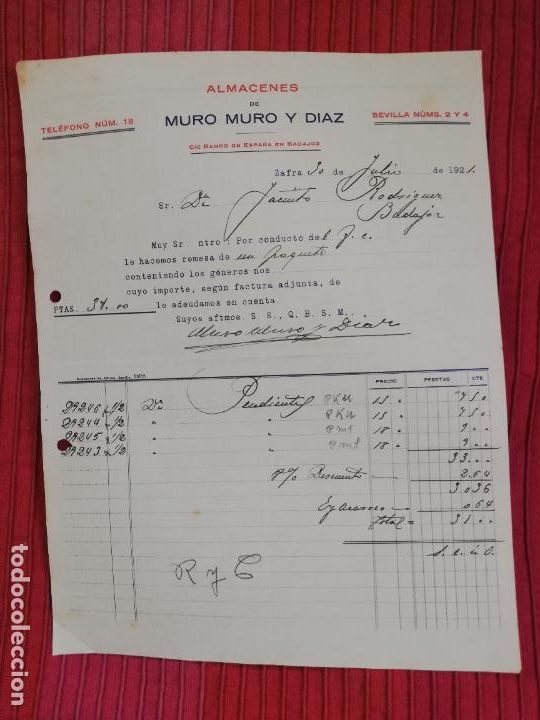 ALMACENES
DE
MURO MURO Y DIAZ
TELÉFONO NÚM. 18
SEVILLA NÚMS. 2 Y 4
C/C BANCO DE ESPAÑA EN BADAJOZ
Zafra 30 de Julio de 1921.
Sr. Dn Jacinto Rodriguez
Badajoz
Muy Sr ntro: Por conducto del f. c.
le hacemos remesa de un paquete
conteniendo los géneros nos
cuyo importe, según factura adjunta, de
PTAS. 31.00 le adeudamos en cuenta
Suyos aftmos. S. S., Q. B. S. M.,
Muro Muro y Diaz
PRECIO PESETAS CTS.
DA246 1/2 Dna Pendientes 15 7 50
DA244 1/2 " " 15 7 50
DA245 1/2 " " 18 9 00
DA243 1/2 " " 18 9 00
33 00
8% Descuento 2.64
30 36
0.64
Total = 31 00
s. e. ú O.
R y C
todocoleccion